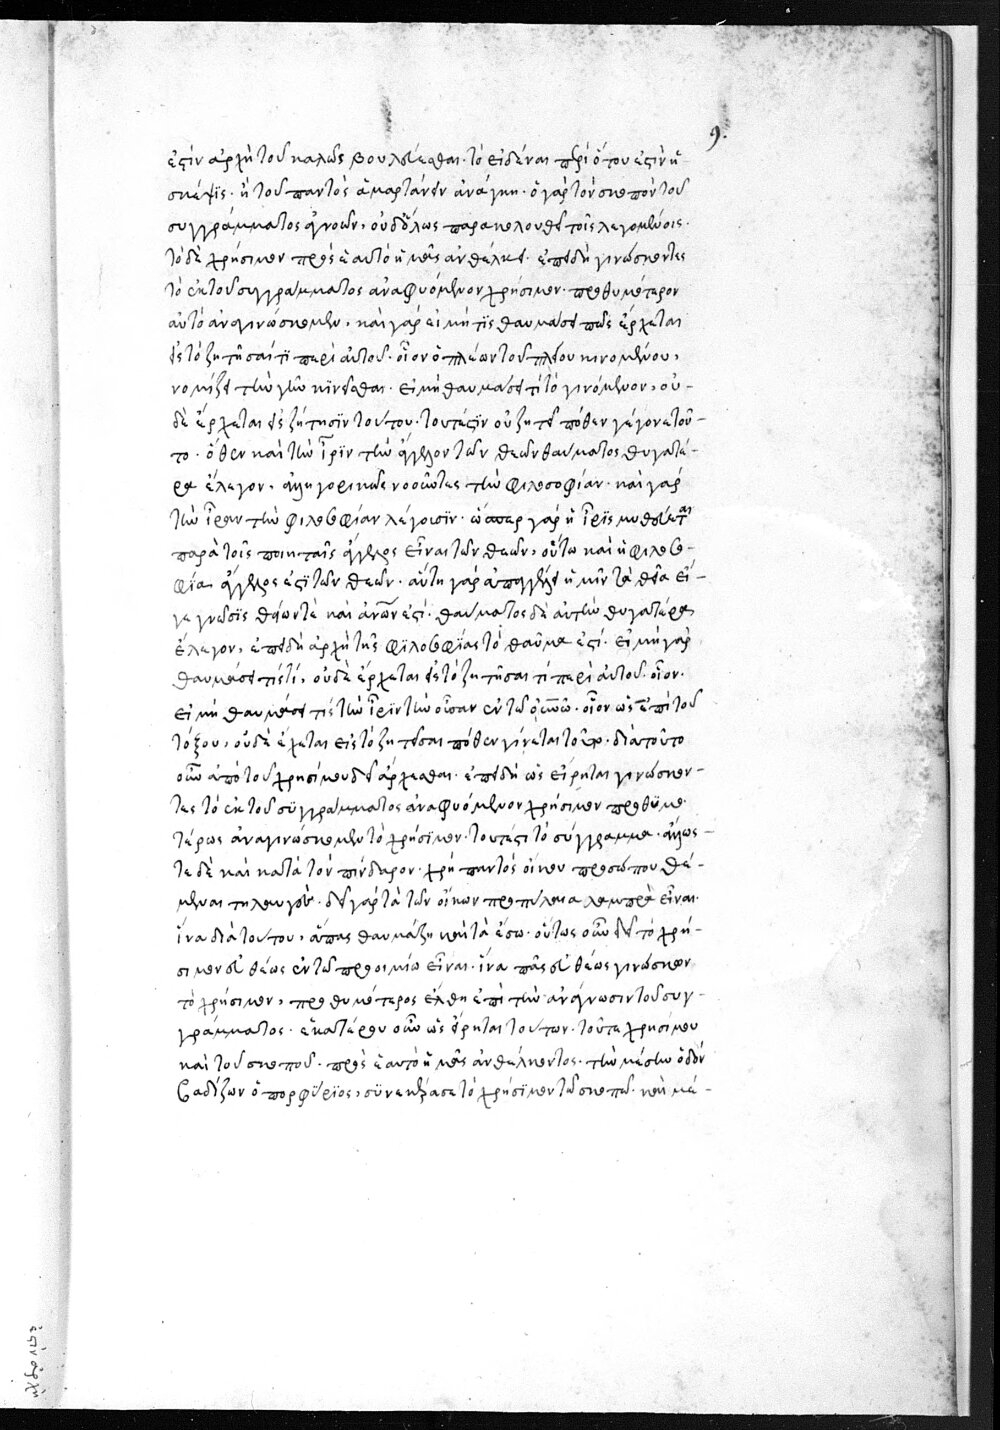 9.
ἐςὶν ἀρχὴ τοῦ καλῶς βουλεύεσθαι· τὸ εἰδέναι περὶ ὅτου ἐςὶν ἡ
σκέψϊς· ἢ τοῦ παντὸς ἁμαρτάνειν ἀνάγκη· ὁ γὰρ τὸν σκοπὸν τοῦ
συγγράμματος ἀγνοῶν, οὐδ' ὅλως παρακολουθεῖ τοῖς λεγομένοις·
τὸ δὲ χρήσιμον πρὸς ἑαυτὸ ἡμᾶς ἀνθέλκει· ἐπειδὴ γινώσκοντες
τὸ ἐκ τοῦ συγγράμματος ἀναφυόμενον χρήσιμον· προθυμότερον
αὐτὸ ἀναγινώσκομεν, καὶ γὰρ εἰ μή τϊς θαυμάσει πῶς ἔρχεται
εἰς τὸ ζητῆσαί τϊ περὶ αὐτοῦ· οἷον ὁ πλέων τοῦ πλοίου κινουμένου,
νομίζει τὴν γῆν κϊνεῖσθαι· εἰ μὴ θαυμάσει τί τὸ γινόμενον, οὐ-
δὲ ἔρχεται εἰς ζήτησϊν τούτου· τουτέςϊν οὐ ζητεῖ πόθεν γέγονε τοῦ-
το· ὅθεν καὶ τὴν ἶρϊν τὴν ἄγγελον τῶν θεῶν θαύματος θυγατέ-
ρα ἔλεγον, ἀλληγορικῶς νοοῦντες τὴν φιλοσοφίαν· καὶ γὰρ
τὴν ἶριν τὴν φιλοσοφίαν λέγουσϊν· ὥσπερ γὰρ ἡ ἶρϊς μυθεύεται
παρὰ τοῖς ποιηταῖς ἄγγελος εἶναι τῶν θεῶν, οὕτω καὶ ἡ φιλοσο-
φία ἄγγελος ἐςϊ τῶν θεῶν· αὕτη γὰρ ἀπαγγέλλει ἡμῖν τὰ θεῖα εἴ-
γε γνῶσϊς θείων τὲ καὶ ἀνων ἐςί· θαύματος δὲ αὐτὴν θυγατέρα
ἔλεγον, ἐπειδὴ ἀρχὴ τῆς φϊλοσοφϊας τὸ θαῦμα ἐςί· εἰ μὴ γὰρ
θαυμάσει τίς τί, οὐδὲ ἔρχεται εἰς τὸ ζητῆσαι τί περὶ αὐτοῦ· οἷον·
εἰ μὴ θαυμάσει τίς τὴν ἶρϊν τὴν οὖσαν ἐν τῶ οὐνῶ· οἷον ὡς ἐπὶ τοῦ
τόξου, οὐδὲ ἔρχεται εἰς τὸ ζητῆσαι πόθεν γίνεται τὸ ὕδωρ· διὰ τοῦτο
οὖν ἀπὸ τοῦ χρησίμου δεῖ ἄρχεσθαι· ἐπειδὴ ὡς εἴρηται γινώσκον-
τες τὸ ἐκ τοῦ σϋγγράμματος ἀναφυόμενον χρήσιμον προθϋμο
τέρως ἀναγινώσκομεν τὸ χρήσϊμον· τουτέςι τὸ σύγγραμμα· ἄλλως-
τε δὲ καὶ κατὰ τὸν πίνδαρον· χρὴ παντὸς οἴκου πρόσωπον θέ-
μεναι τηλαυγές· δεῖ γὰρ τὰ τῶν οἴκων προπύλαια λαμπρὰ εἶναι·
ἵνα διὰ τούτου, ἅπας θαυμάζη καὶ τὰ ἔσω· οὕτως οὖν δεῖ τὸ χρή-
σιμον εὐθέως ἐν τῶ προοιμίω εἶναι· ἵνα πᾶς εὐθέως γινώσκων
τὸ χρήσιμον, προθυμότερος ἔλθη ἐπὶ τὴν ἀνάγνωσιν τοῦ συγ-
γράμματος· ἑκατέρου οὖν ὡς εἴρηται τούτων· τοῦ τε χρησίμου
καὶ τοῦ σκοποῦ· πρὸς ἑαυτὸ ἡμᾶς ἀνθέλκοντος· τὴν μέσην ὁδὸν
βαδίζων ὁ πορφύρϊος, σϋνεκέρασε τὸ χρήσϊμον τῶ σκοπῶ· καὶ μέ-